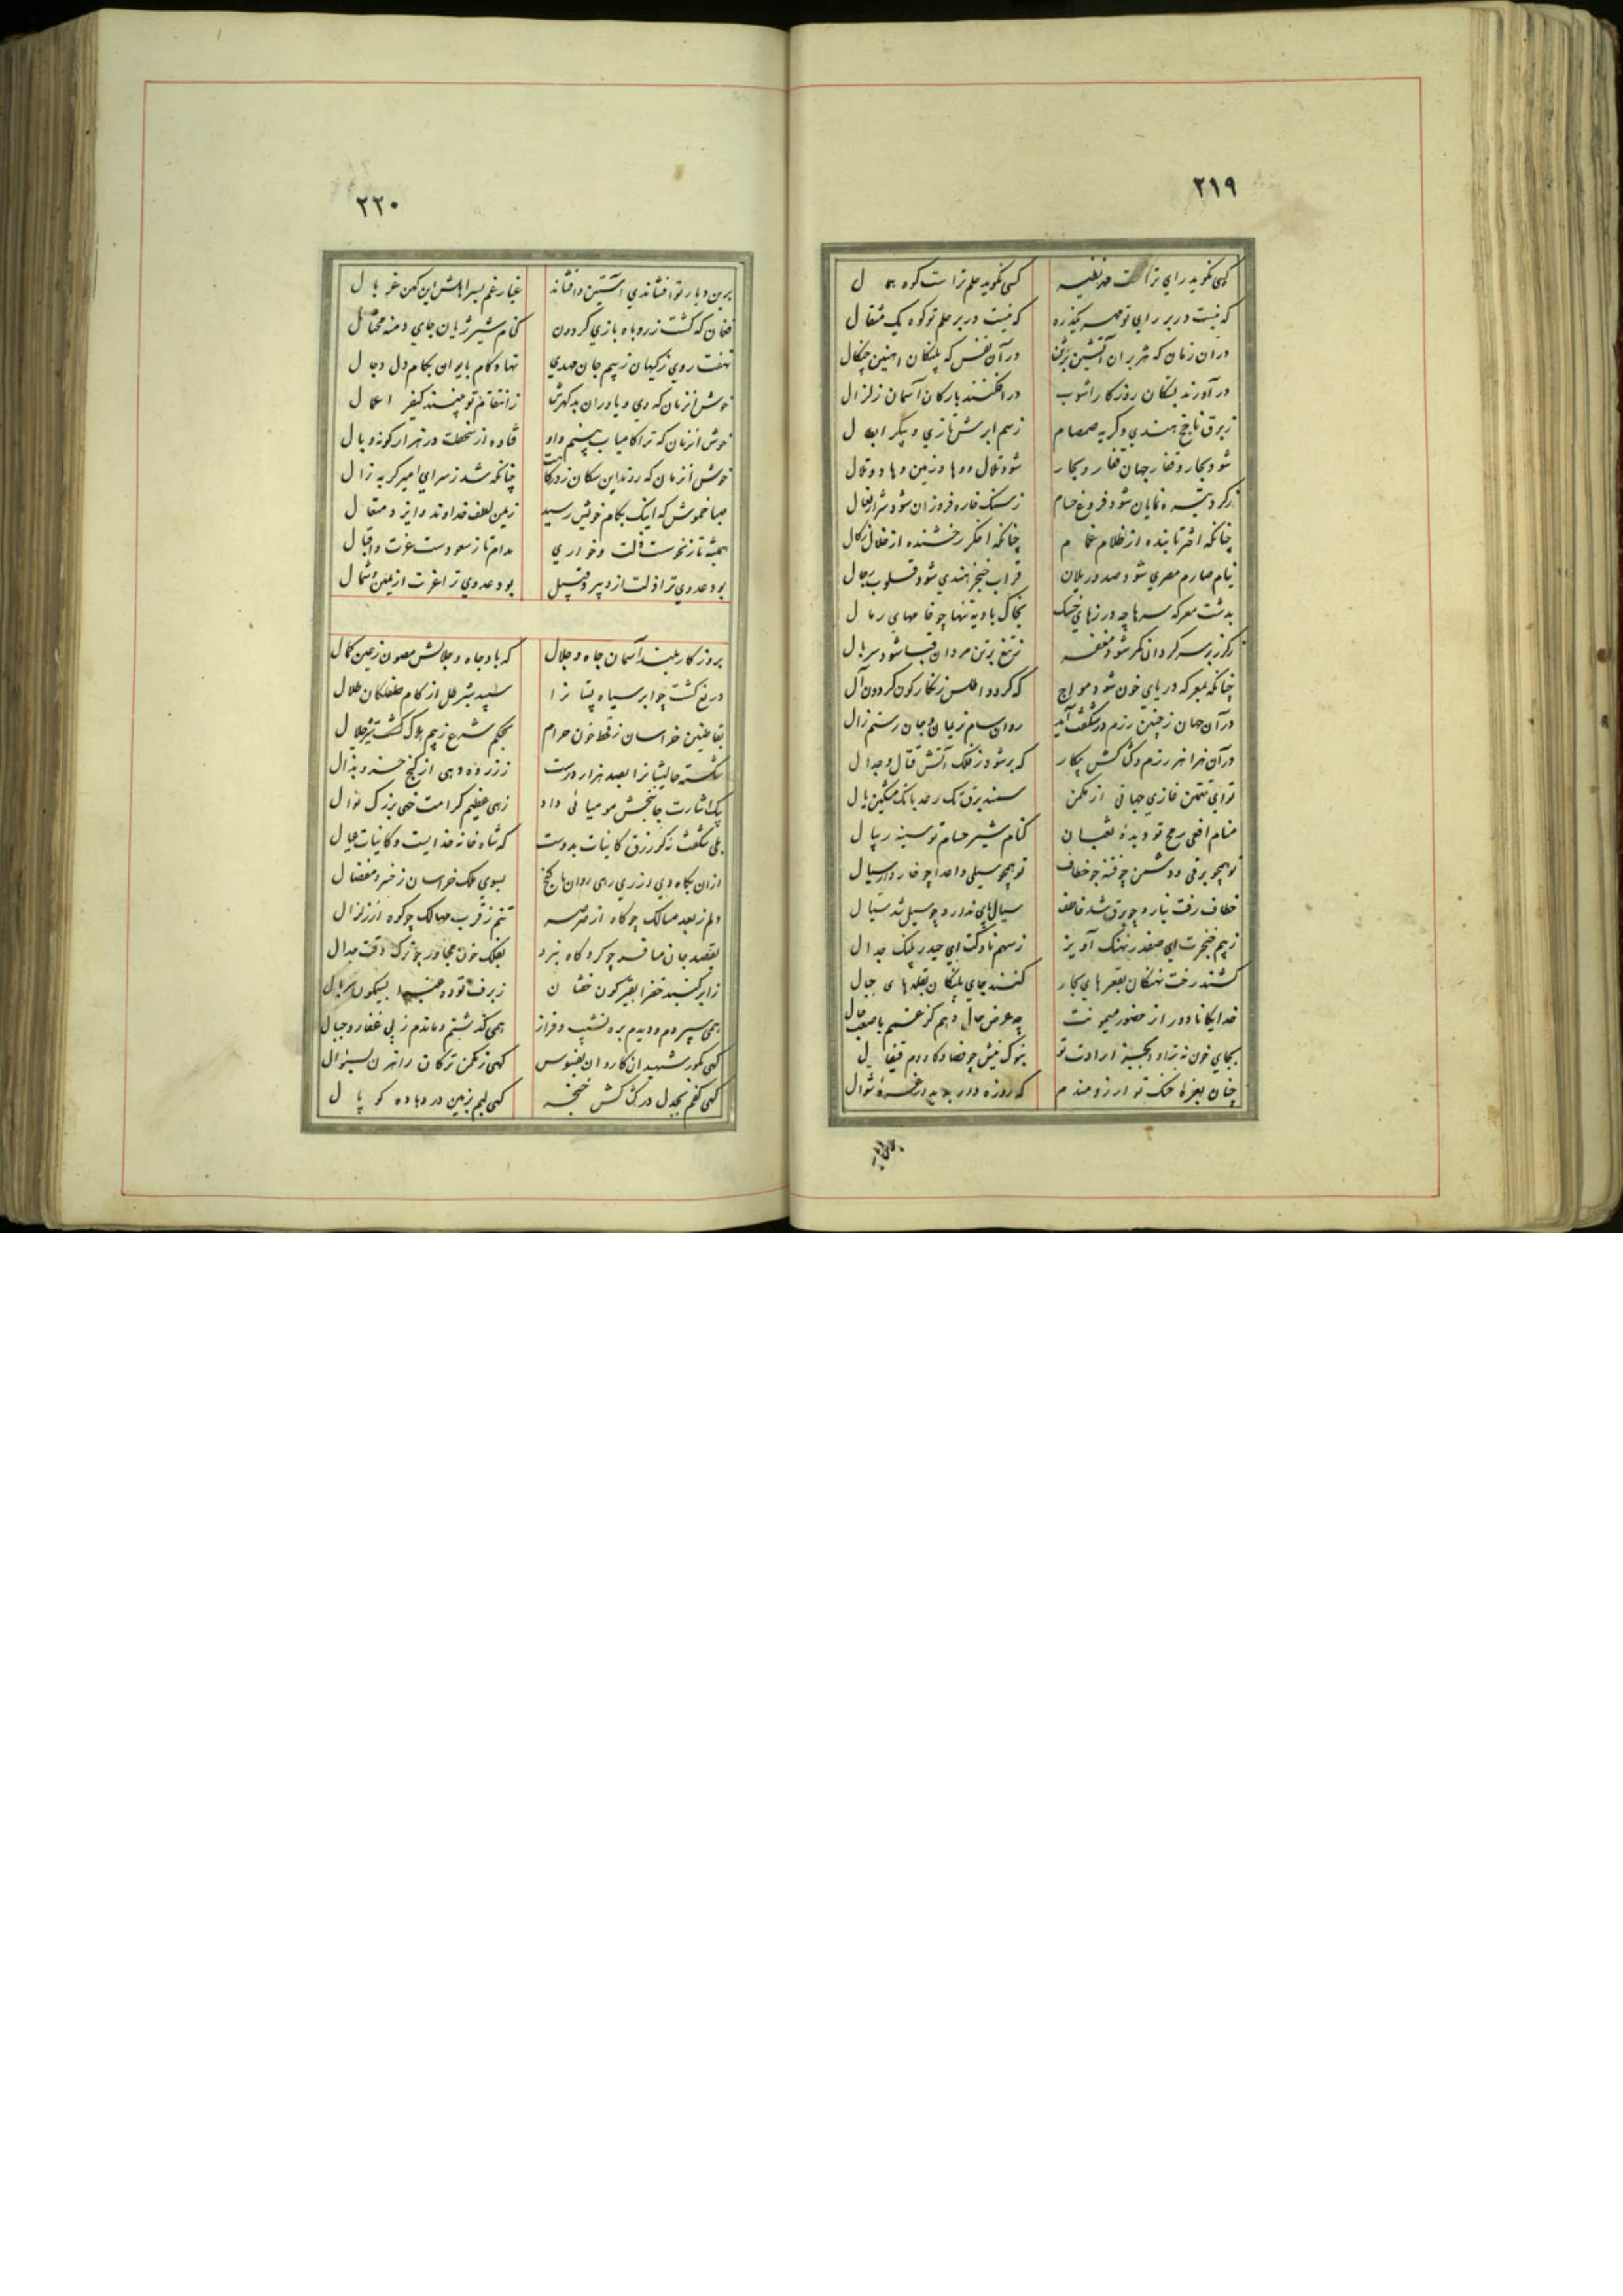 ۲۱۹
کسی نکوید رای ترا مهر نظیر کسی نکوید حلم تراست کوه همال
که نیست در بر رای تو مهر یکذره که نیست در بر حلم تو کوه یک مثقال
در آن زمان که هزبران آتشین در آن نفس که پلنکان اهنین چنکال
در آورند بسکان روزکار اشوب در افکنند بارکان آسمان زلزال
ز برق ناچخ هندی و کربه صمصام ز سم ابرش تازی و پیکر ابطال
شود بحار و قفار جهان قفار و بحار شود تلال و وهاد زمین وهاد و تلال
ز کرد تیره نمایان شود فروغ حسام ز سنک خاره فروزان شود شرار نعال
چنانکه اختر تابنده از ظلام غمام چنانکه اخکر رخشنده از خلال زکال
نیام صارم مصری شود صدور یلان قراب خنجر هندی شود قلوب رجال
بدشت معرکه سرها چه درزهای خنک بخاک بادیه تنها چو قامهای رمال
ز کرز بر سر کردان مکر شود مغفر ز تیغ بر تن مردان قبا شود سربال
چنانکه معرکه دریای خون شود مواج که کردد اطلس زنکارکون کردون آل
در آن جهان ز چنین رزم در شکفت آید روان سام نریمان و جان رستم زال
در آن هزاهز رزم و کشاکش پیکار که بر شود ز فلک آتش قتال و جدال
تو ای تهمتن غازی جهانی از مکمن سمند برق تک رعد بانک مشکین یال
منام افعی رمح تو دیده ثعبان کنام شیر حسام تو سینه ریبال
تو همچو برقی و دشمن چو فتنه چو خطاف تو همچو سیلی و اعدا چو خار و سیال
خطاف رفت نیارد چو برق شد خاطف سیال پای ندارد چو سیل شد سیال
ز بیم خنجرت ای صفدر نهنک آویز ز سهم ناوکت ای حیدر پلنک جدال
کشند رخت نهنکان بقعرهای بحار کنند جای پلنکان بقلهای جبال
خدایکانا دور از حضور میمونت چه عرض حال دهم کز غمم باصعب حال
بجای خون نتراود بجز ارادت تو بنوک نیش چو فصاد کاردم قیفال
چنان بغره خنک تو ارزومندم که روزه دار به غره شوال
۲۲۰
برین دیار تو افشاندی آستین و افشاند غبار غم بسر اهلش این کهن غربال
فغان که کشت ز روباه بازی کردون کنام شیر ژیان جای دمنه محتال
نهفت روی ز کیهان ز بیم جان مهدی نهاد کام بایران بکام دل دجال
خوش انزمان که وی و یاوران بد کهرش ز انتقام تو بینند کیفر اعمال
خوش انزمان که ترا کامیاب بینم و او فتاده از سخطت در هزار کونه وبال
خوش انزمان که روند این سکان ز درکاهت چنانکه شد ز سرای امیر کربه زال
صبا خموش که اینک بکام خویش رسید زیمن لطف خداوند و ایزد متعال
همیشه تا ز نحوست ذلت و خواری مدام تا ز سعودست عزت و اقبال
بود عدوی ترا ذلت از دبیر و قبیل بود عدوی ترا عزت از یمین و شمال
بروزکار بلند آسمان جاه و جلال که باد جاه و جلالش مصون ز عین کمال
دریغ کشت چو ابر سیاه پستانرا سپید شیر علل از کام طفلکان حلال
بقاطنین خراسان ز قحط خون حرام بحکم شرع ز بیم هلاک کشت حلال
شکسته حالیشانرا بصد هزار درست ز زر ده دهی از کنج خسرو بذال
بیک اشارت جانبخش مومیائی داد زهی عظیم کرامت خهی بزرک نوال
بلی شکفت نه کز رزق کاینات بدوست که شاه خانه خدایست و کاینات عیال
از آن بکاه دی از ری رهی روان با کنج بسوی ملک خراسان ز خسرو مفضال
دلم ز بعد مسالک چو کاه از صرصر تنم ز قرب مهالک چو کوه از زلزال
بقصد جان مسافر چو کرد کاه نبرد بفلک خون مجاور چو ترک وقت جدال
ز ابر کنبد خضرا بقیرکون خفتان ز برف توده غبرا بسیمکون سربال
همی سپردم و دیدم بره نشیب و فراز همی کذشتم و ماندم ز پی قفار و جبال
کهی بکور شهیدان کاروان بفسوس کهی ز مکمن ترکان راهزن بسؤال
کهی کفم بجدل در کشاکش خنجر کهی لبم بزمین در دهاده کوپال